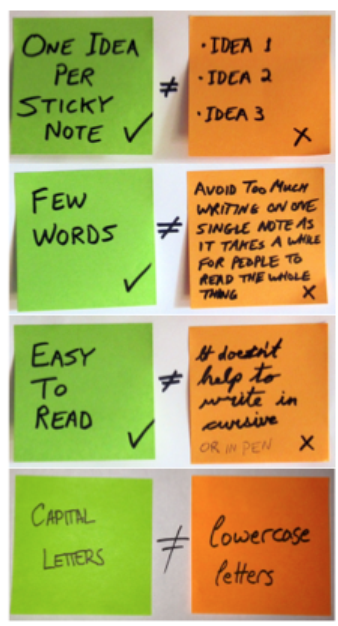 ONE IDEA
PER
STICKY
NOTE ✓
≠
· IDEA 1
· IDEA 2
· IDEA 3
×
FEW
WORDS
✓
≠
AVOID TOO MUCH
WRITING ON ONE
SINGLE NOTE AS
IT TAKES A WHILE
FOR PEOPLE TO
READ THE WHOLE
THING ×
EASY
TO
READ ✓
≠
It doesn't
help to
write in
cursive
OR IN PEN ×
CAPITAL
LETTERS
≠
lowercase
letters